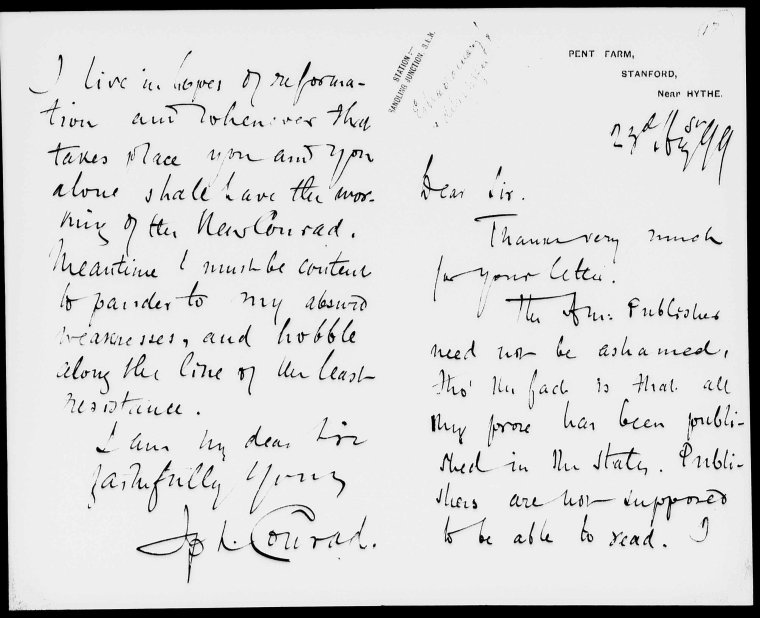 STATION:—
SANDLING JUNCTION. S.E.R.
PENT FARM,
STANFORD,
Near HYTHE.
23d 99
Dear Sir.
Thanks very much
for your letter.
The Am: Publisher
need not be ashamed,
tho' the fact is that all
my prose has been publi-
shed in the States. Publi-
shers are not supposed
to be able to read. I
I live in hopes of reforma-
tion and whenever that
takes place you and you
alone shall have the wor-
king of the New Conrad.
Meantime I must be content
to pander to my absurd
weaknesses, and hobble
along the line of the least
resistance.
I am my dear Sir
faithfully yours
Jph. Conrad.